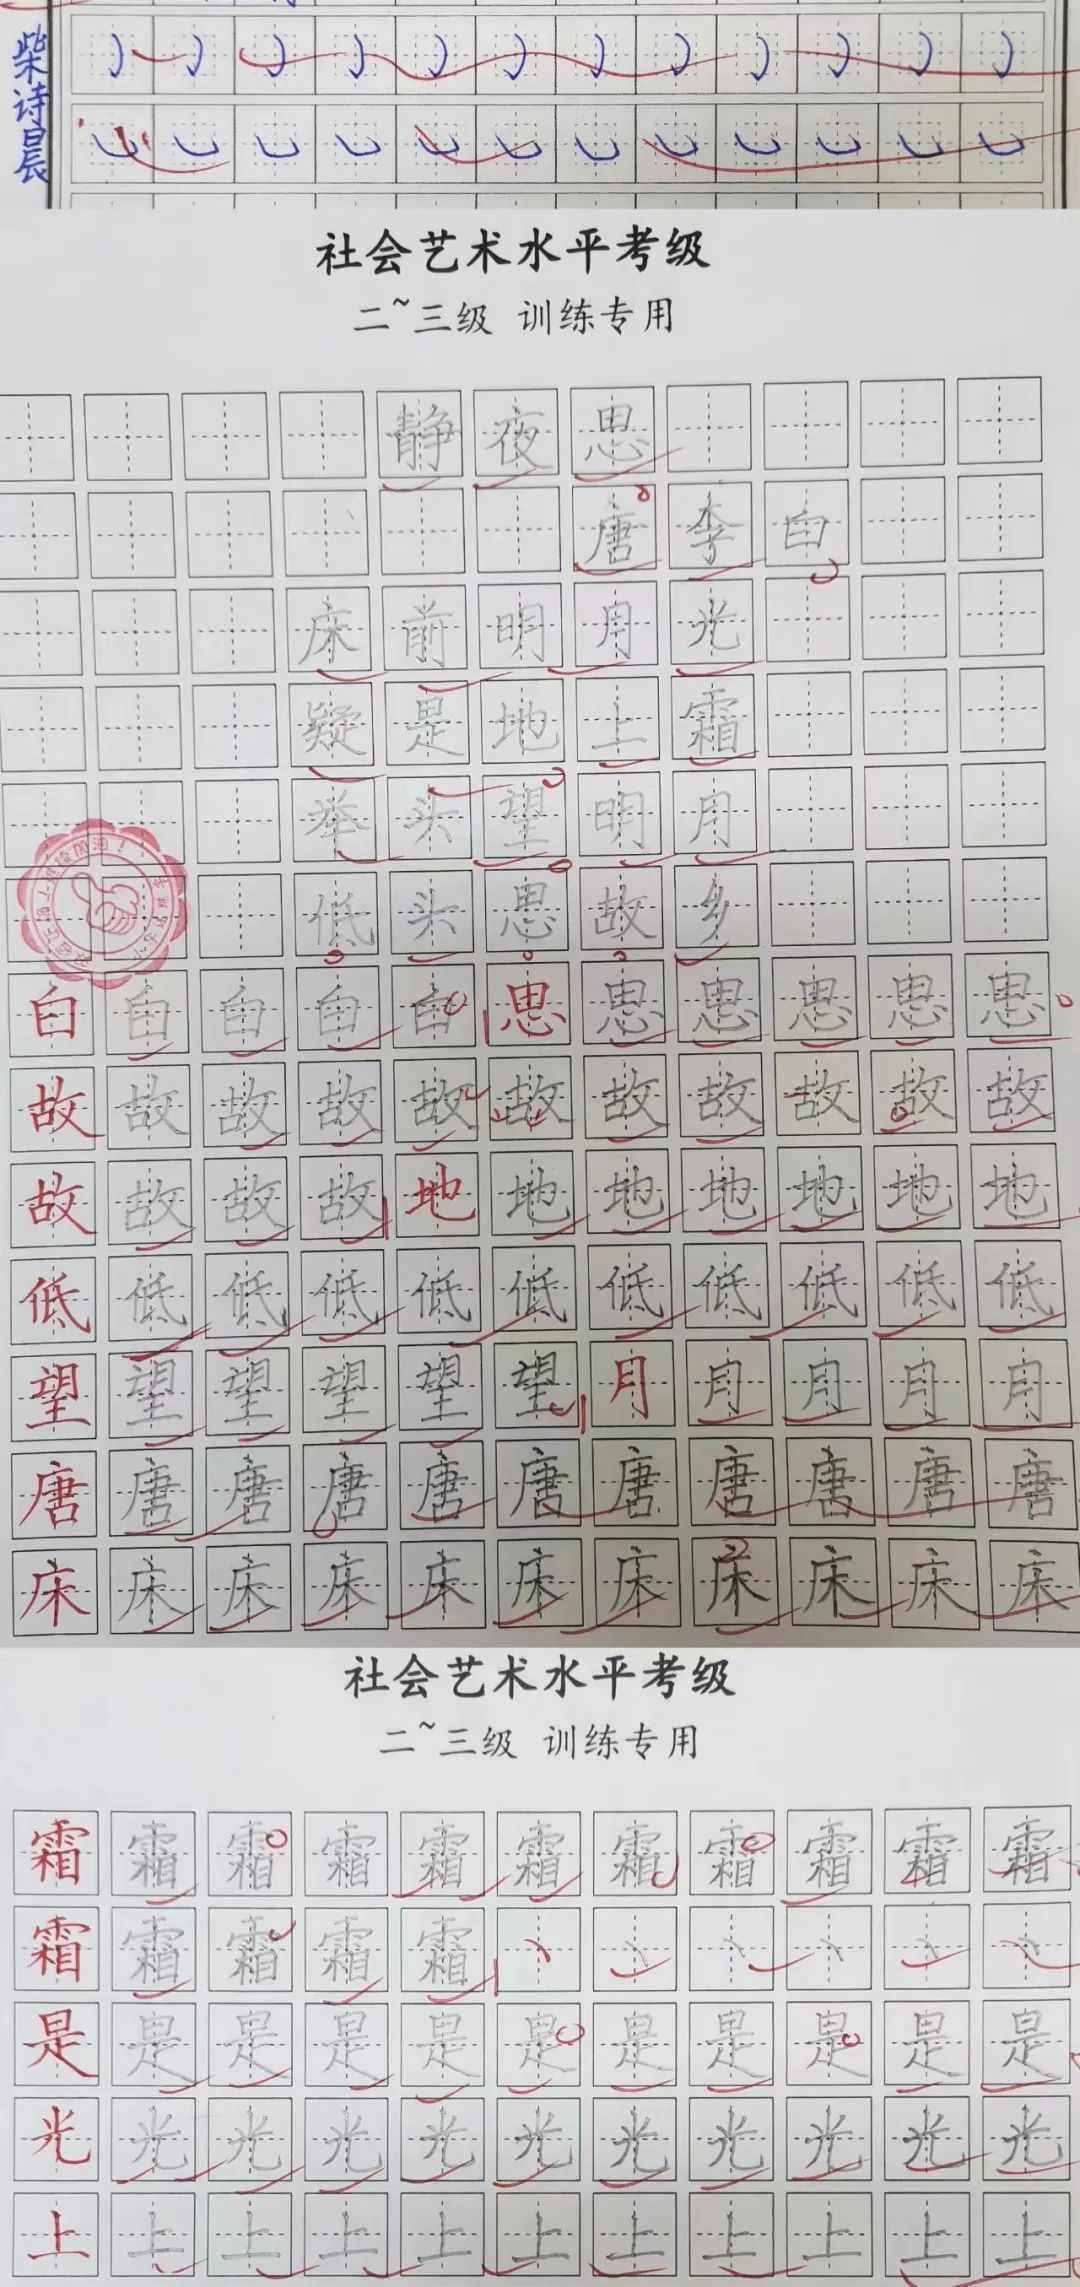 柴诗晨
社会艺术水平考级
二~三级 训练专用
静夜思
唐李白
床前明月光
疑是地上霜
举头望明月
低头思故乡
自自自自自思思思思思思
故故故故故故故故故故故
故故故故地地地地地地地
低低低低低低低低低低低
望望望望望望月月月月月
唐唐唐唐唐唐唐唐唐唐唐
床床床床床床床床床床床
社会艺术水平考级
二~三级 训练专用
霜霜霜霜霜霜霜霜霜霜霜
霜霜霜霜霜
是是是是是是是是是是是
光光光光光光光光光光光
上上上上上上上上上上上